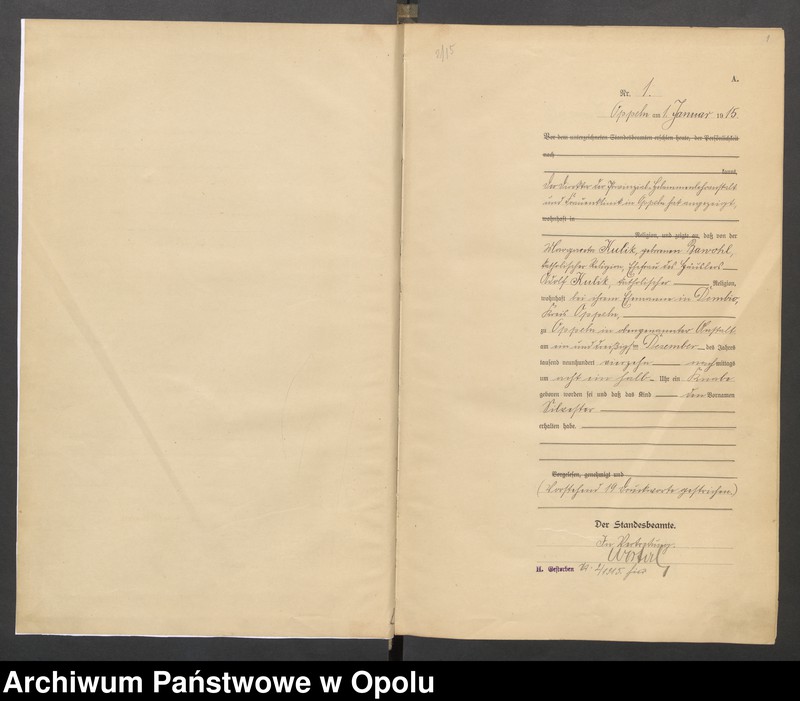 2/15
1
A.
Nr. 1.
Oppeln am 1. Januar 1915.
Vor dem unterzeichneten Standesbeamten erschien heute, der Persönlichkeit
nach
kannt,
Der Direktor der Provinzial-Hebammenlehranstalt
und Frauenklinik in Oppeln hat angezeigt,
wohnhaft in
Religion, und zeigte an, daß von der
Margarete Kulik, geborenen Bawohl,
katholischer Religion, Ehefrau des Häuslers
Adolf Kulik, katholischer Religion,
wohnhaft bei ihrem Ehemanne in Dembio,
Kreis Oppeln,
zu Oppeln in obengenannter Anstalt
am ein und dreißigsten Dezember des Jahres
tausend neunhundert vierzehn nachmittags
um acht ein halb Uhr ein Knabe
geboren worden sei und daß das Kind den Vornamen
Silvester
erhalten habe.
Vorgelesen, genehmigt und
(Vorstehend 19 Druckworte gestrichen)
Der Standesbeamte.
In Vertretung.
H. Gestorben Nr. 2/1915 hier
Archiwum Państwowe w Opolu